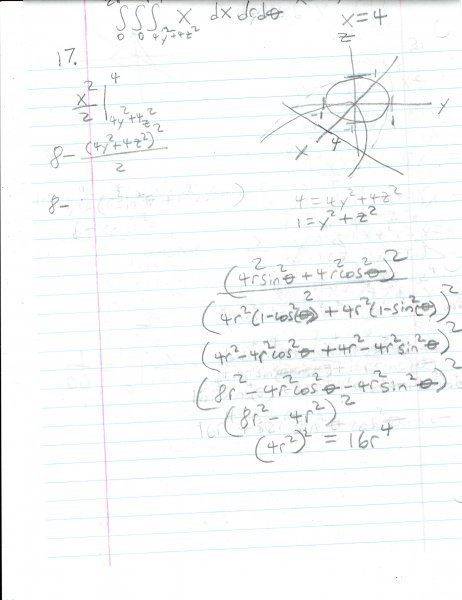 ∫₀ ∫₀ ∫_{4y²+4z²} x dx drdθ
x=4
17.
z
x²/2 |_{4y²+4z²}^{4}
1
-1
1
y
-1
x
4
8 - (4y²+4z²)²/2
8-
4 = 4y²+4z²
1=y²+z²
(4r²sin²θ + 4r²cos²θ)²
(4r²(1-cos²(θ)) + 4r²(1-sin²(θ)))²
(4r²-4r²cos²θ + 4r²-4r²sin²θ)²
(8r² - 4r²cos²θ - 4r²sin²θ)²
(8r² - 4r²)²
(4r²)² = 16r⁴